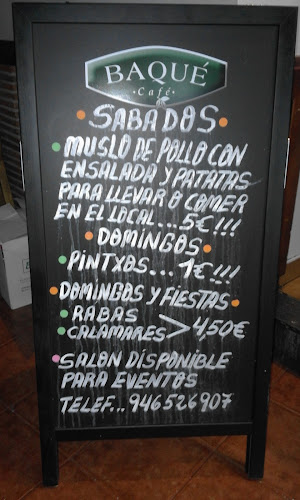 BAQUÉ
Café
SABADOS
MUSLO DE POLLO CON
ENSALADA Y PATATAS
PARA LLEVAR O COMER
EN EL LOCAL...5€!!!
DOMINGOS
PINTXOS...1€!!!
DOMINGOS Y FIESTAS
RABAS
CALAMARES > 4,50€
SALON DISPONIBLE
PARA EVENTOS
TELEF...946526907